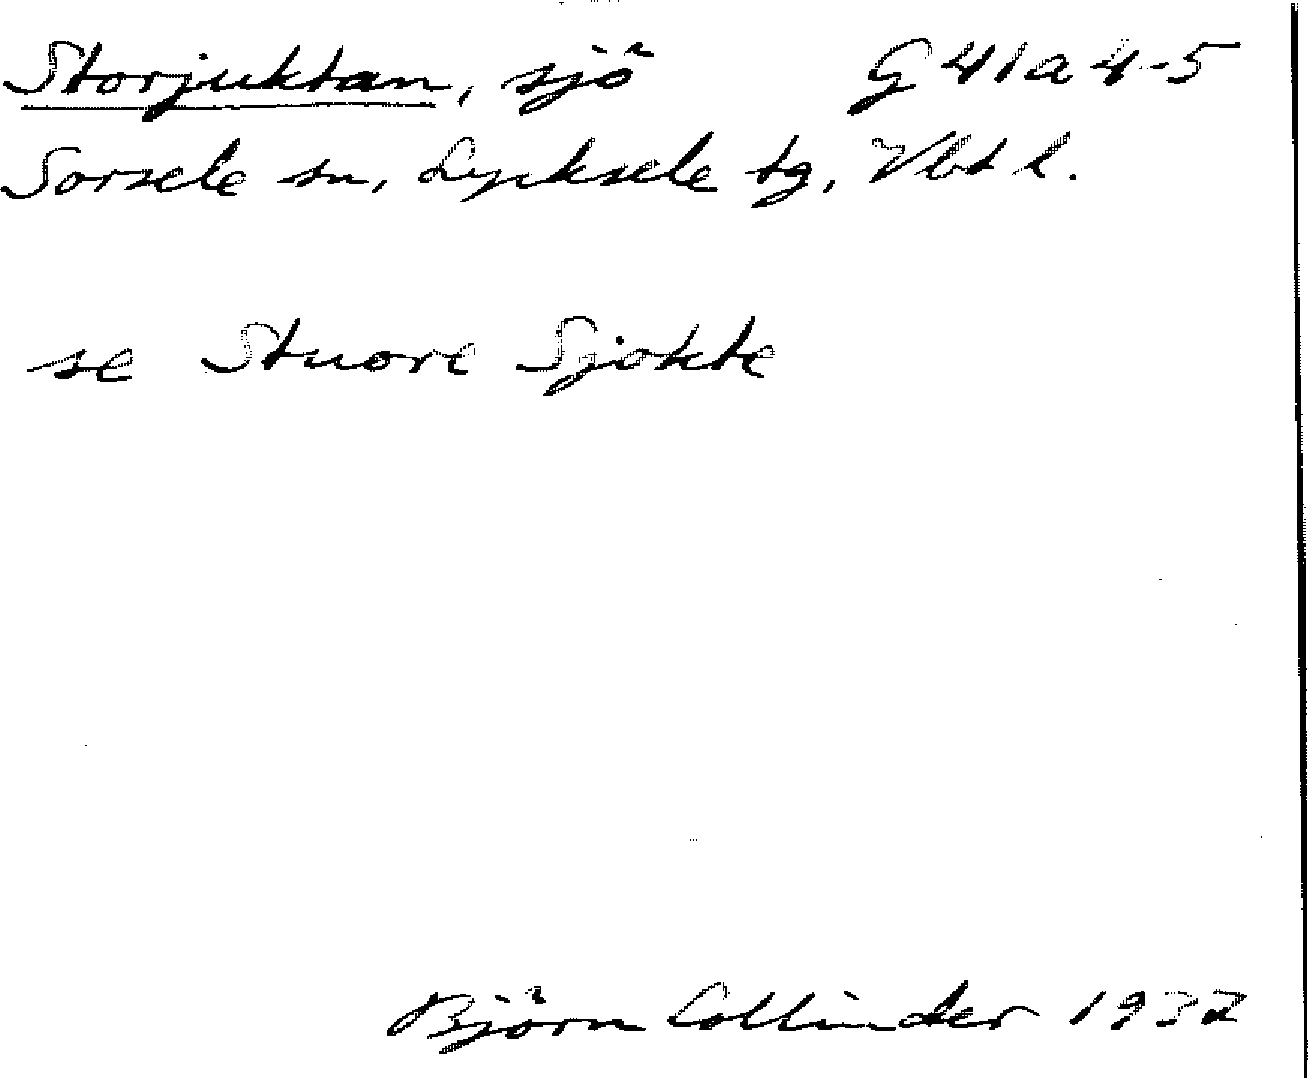 Storjuktan, sjö G 41a 4-5
Sorsele sn, Lycksele tg, Vbt l.
se Stuore Sjokte
Björn Collinder 1932